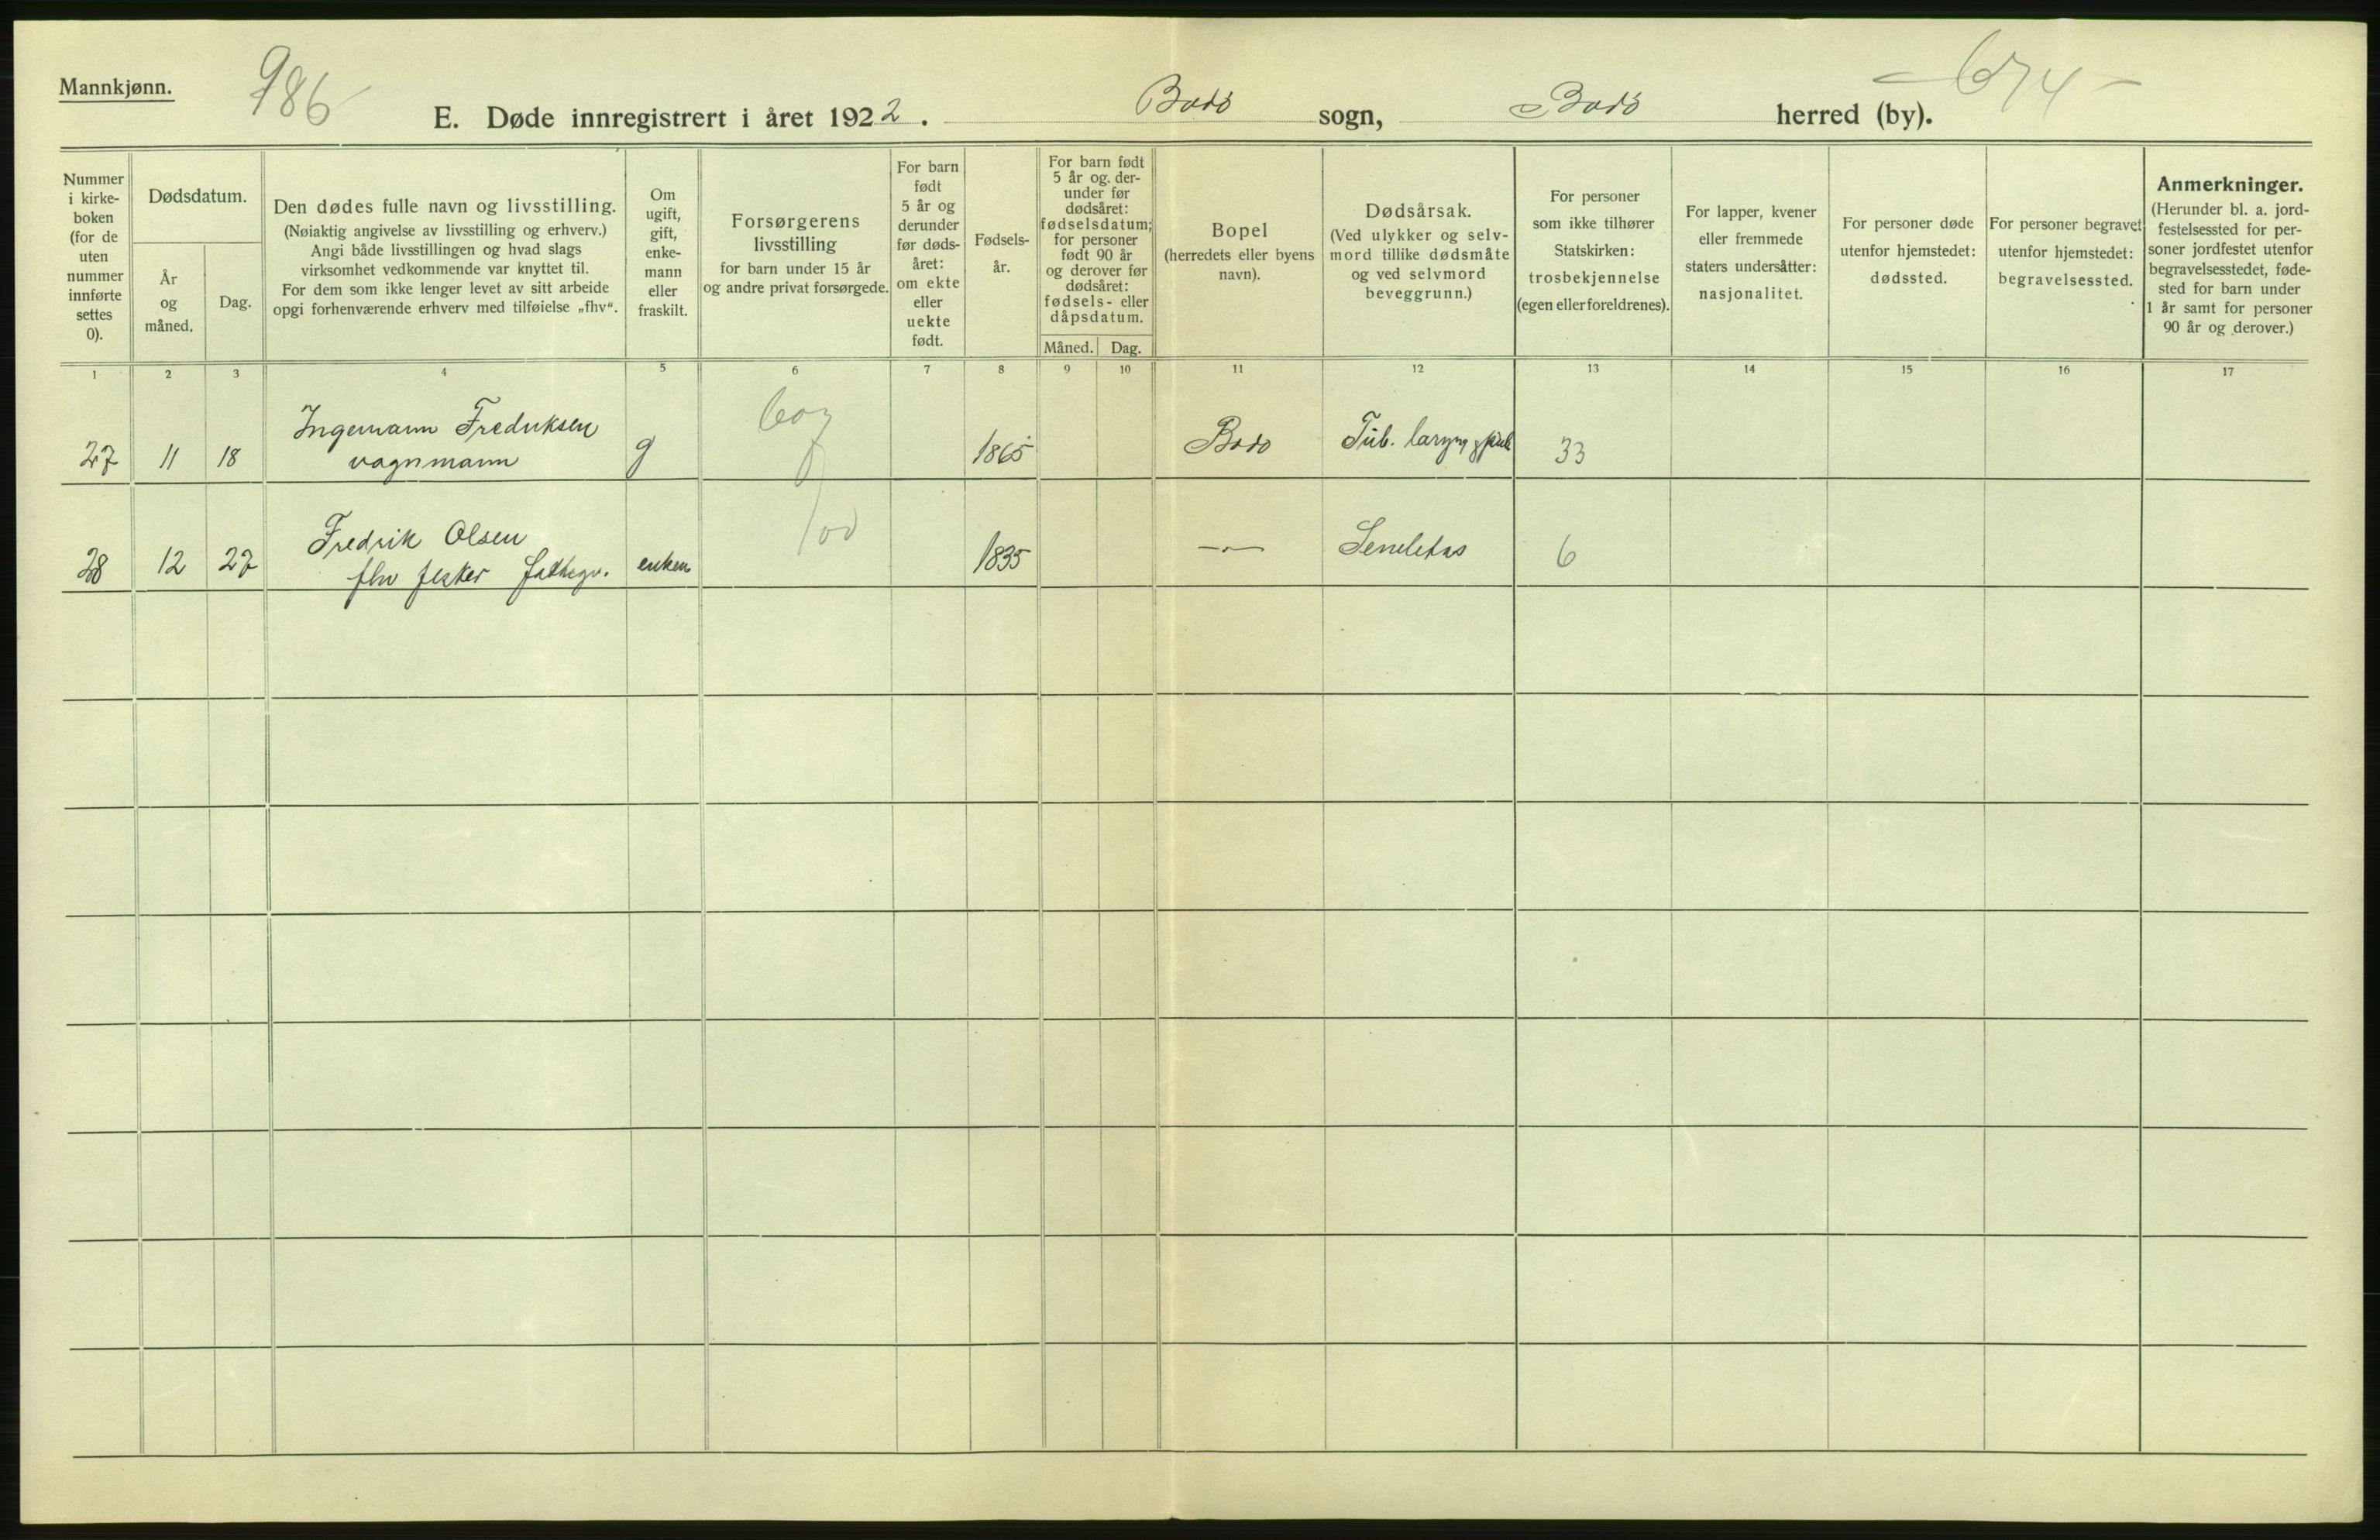 Mannkjønn.
986
674
E. Døde innregistrert i året 1922. Bodö sogn, Bodö herred (by).
Nummer
i kirke-
boken
(for de
uten
nummer
innførte
settes
0).
Dødsdatum.
År
og
måned.
Dag.
Den dødes fulle navn og livsstilling.
(Nøiaktig angivelse av livsstilling og erhverv.)
Angi både livsstillingen og hvad slags
virksomhet vedkommende var knyttet til.
For dem som ikke lenger levet av sitt arbeide
opgi forhenværende erhverv med tilføielse „fhv“.
Om
ugift,
gift,
enke-
mann
eller
fraskilt.
Forsørgerens
livsstilling
for barn under 15 år
og andre privat forsørgede.
For barn
født
5 år og
derunder
før døds-
året:
om ekte
eller
uekte
født.
Fødsels-
år.
For barn født
5 år og. der-
under før
dødsåret:
fødselsdatum;
for personer
født 90 år
og derover før
dødsåret:
fødsels- eller
dåpsdatum.
Måned. Dag.
Bopel
(herredets eller byens
navn).
Dødsårsak.
(Ved ulykker og selv-
mord tillike dødsmåte
og ved selvmord
beveggrunn.)
For personer
som ikke tilhører
Statskirken:
trosbekjennelse
(egen eller foreldrenes).
For lapper, kvener
eller fremmede
staters undersåtter:
nasjonalitet.
For personer døde
utenfor hjemstedet:
dødssted.
For personer begravet
utenfor hjemstedet:
begravelsessted.
Anmerkninger.
(Herunder bl. a. jord-
festelsessted for per-
soner jordfestet utenfor
begravelsesstedet, føde-
sted for barn under
1 år samt for personer
90 år og derover.)
1 2 3 4 5 6 7 8 9 10 11 12 13 14 15 16 17
Ingemann Fredriksen
27 11 18 vognmann g 1865 Bodo Tub. laryng 33
Fredrik Olsen
28 12 27 fhv fisker enkem 1835 —"— Senilitas 6